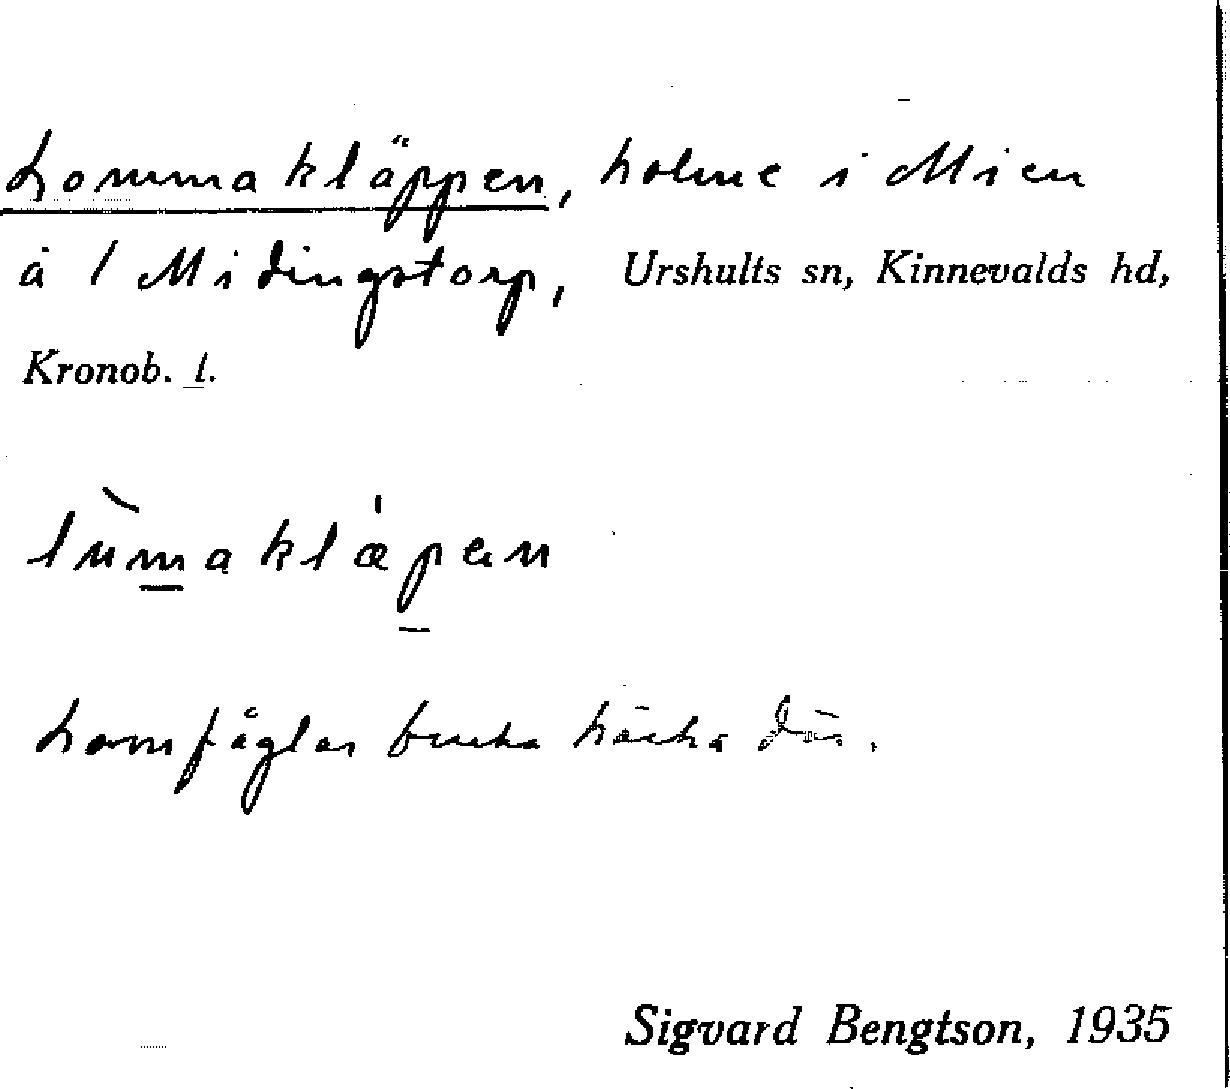 Lommakläppen, holme i Mien
å / Midingstorp, Urshults sn, Kinnevalds hd,
Kronob. l.
lùmaklæpen
Lomfåglar bruka häcka där.
Sigvard Bengtson, 1935